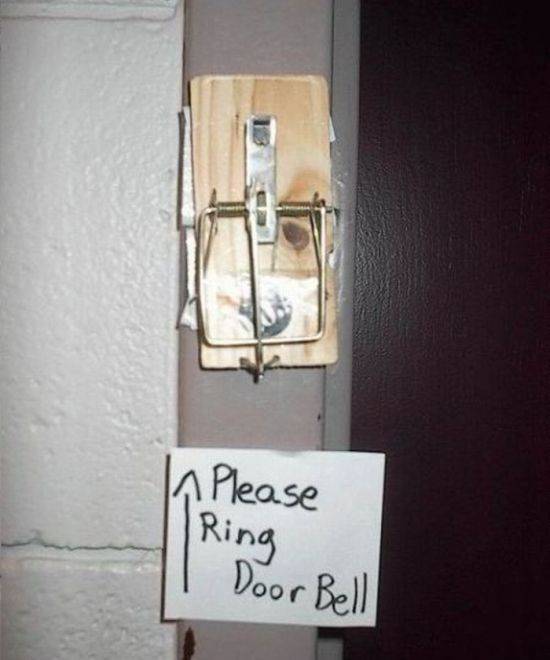 ↑ Please
Ring
Door Bell